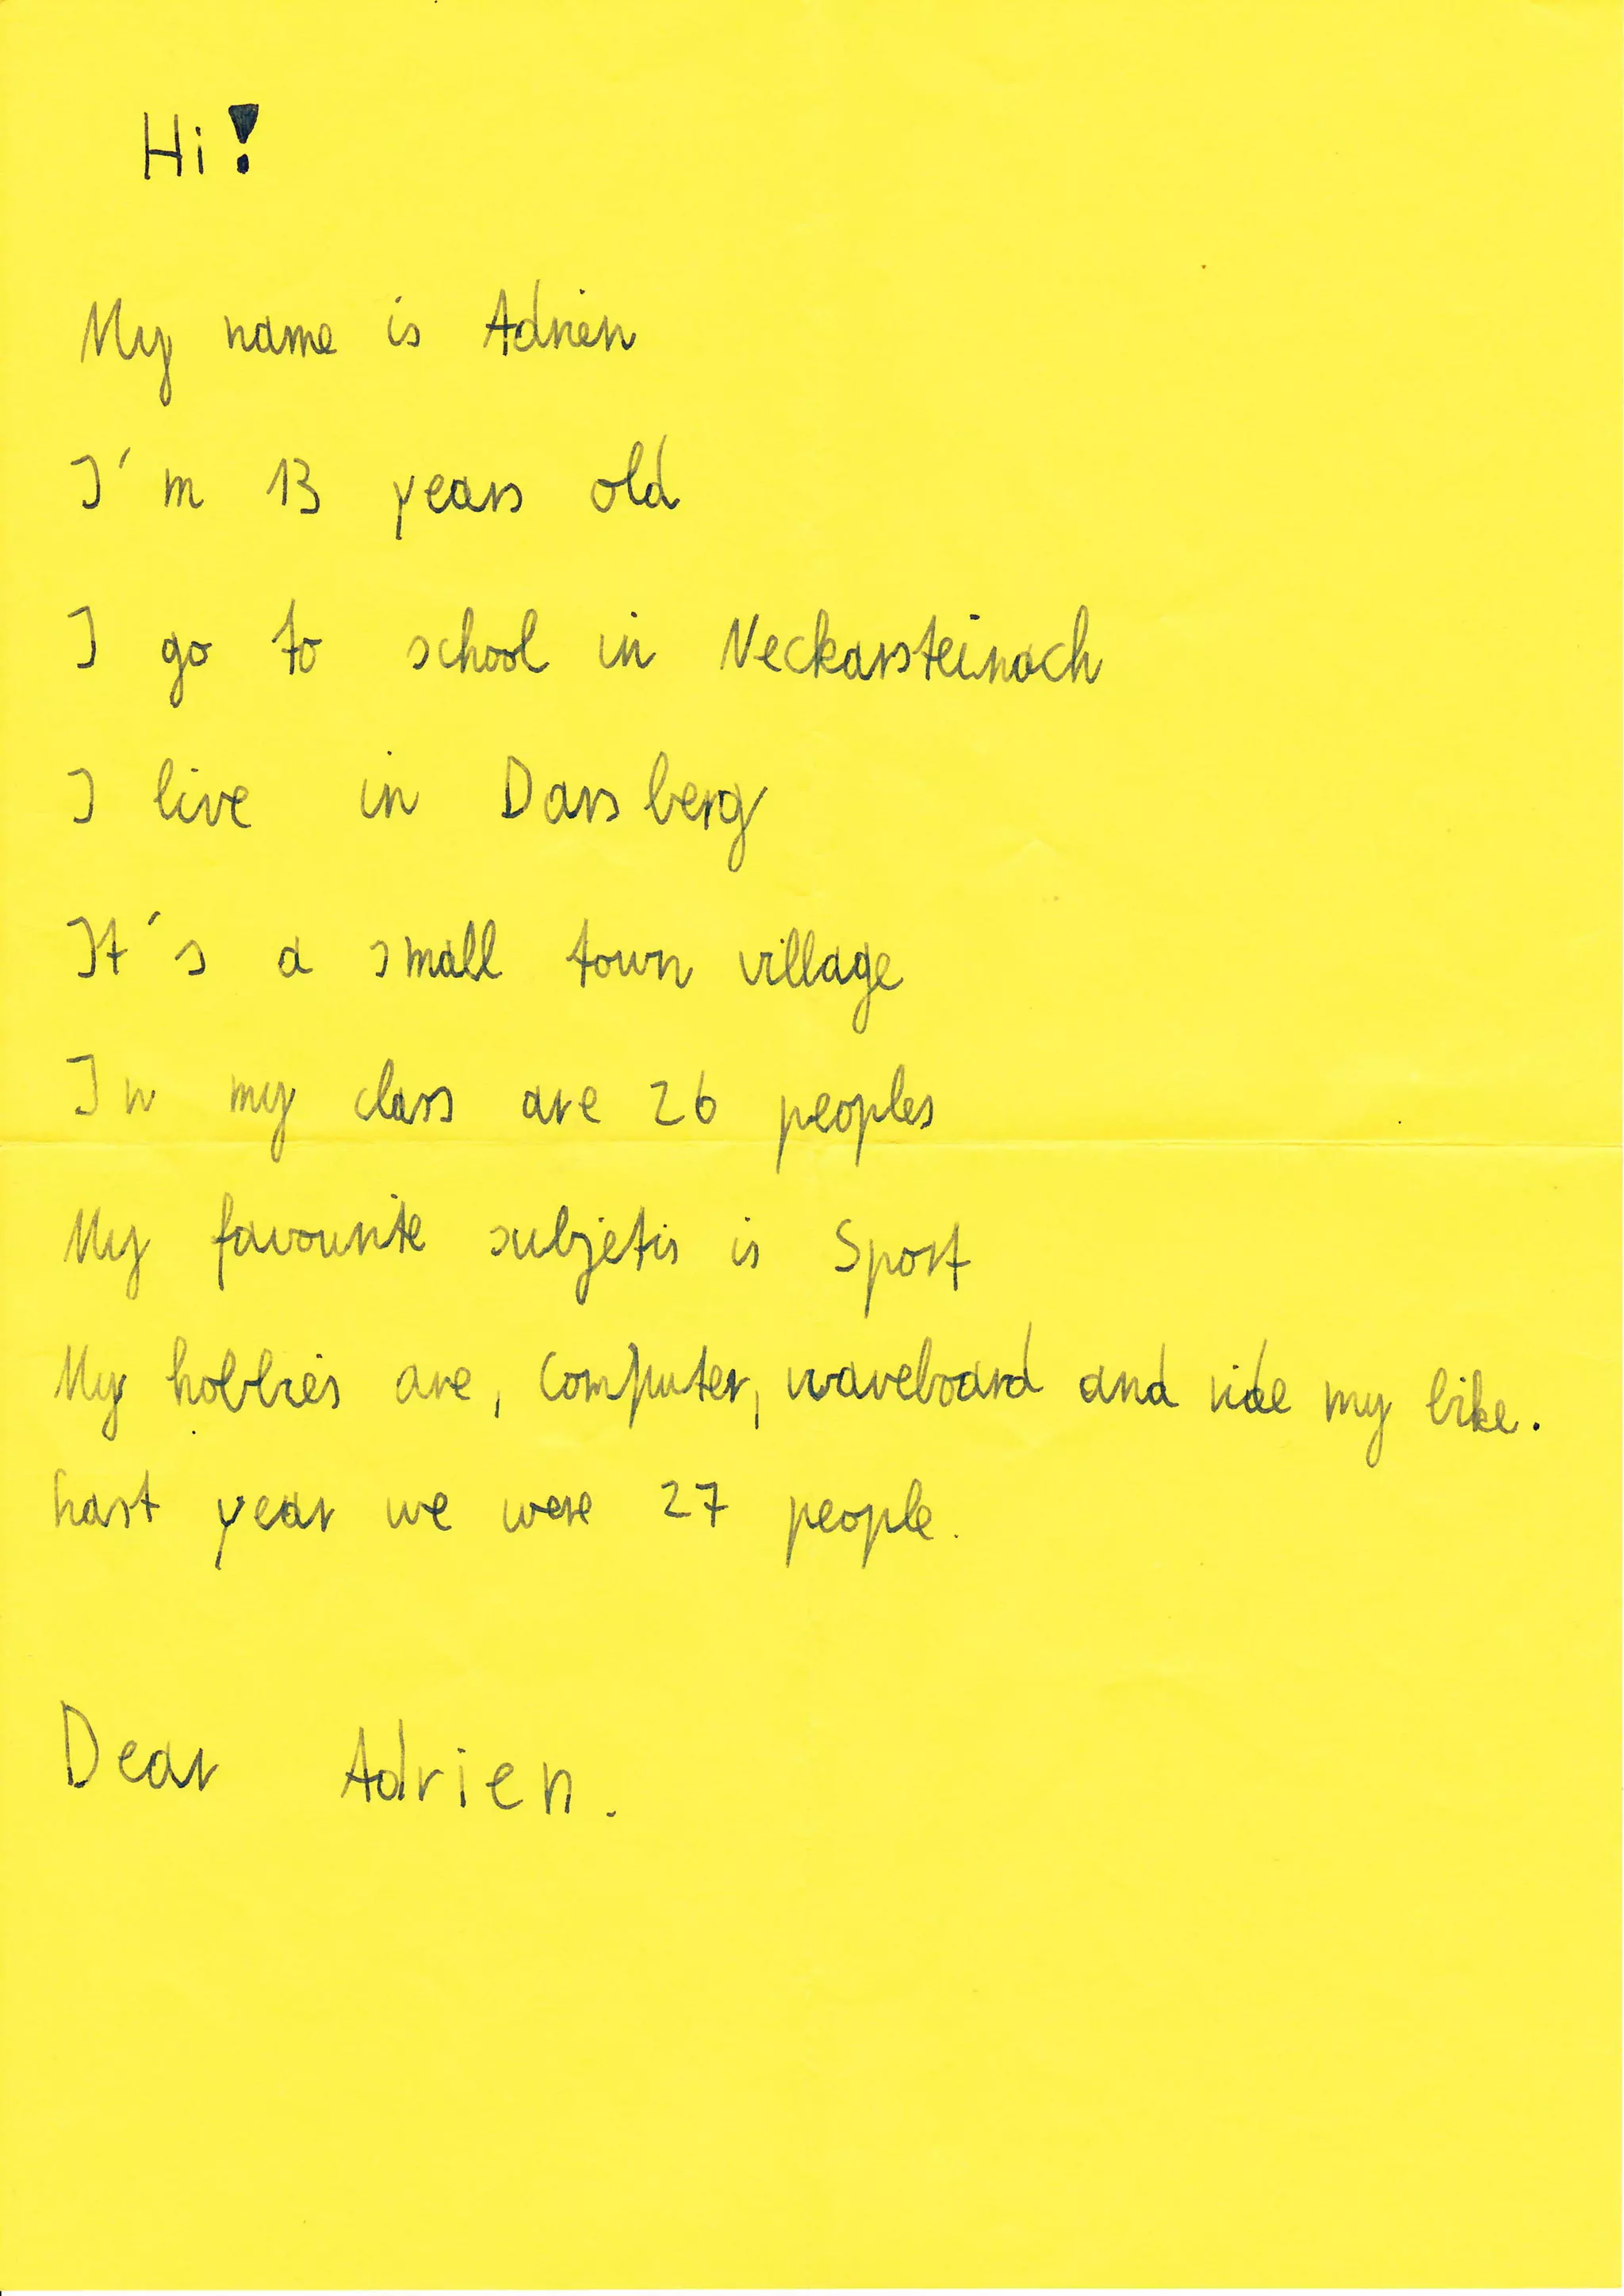 Hi!
My name is Adrien
I'm 13 years old
I go to school in Neckarsteinach
I live in Darsberg
It's a small town village
In my class are 26 peoples
My favourite subjetis is Sport
My hobbies are, Computer, waveboard and ride my bike.
Last year we were 27 people.
Dear Adrien.